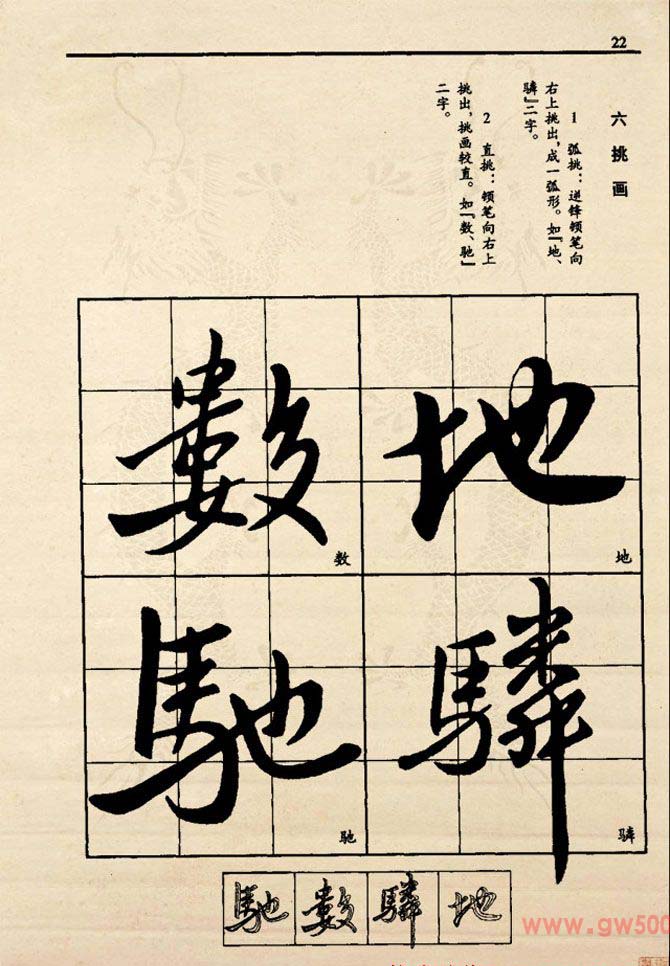 22
六 挑 画
1 弧挑：逆锋顿笔向
右上挑出，成一弧形。如『地、
驎』二字。
2 直挑：顿笔向右上
挑出，挑画较直。如『数、驰』
二字。
地
地
驎
驎
數
数
馳
驰
地 驎 數 馳
www.gw500